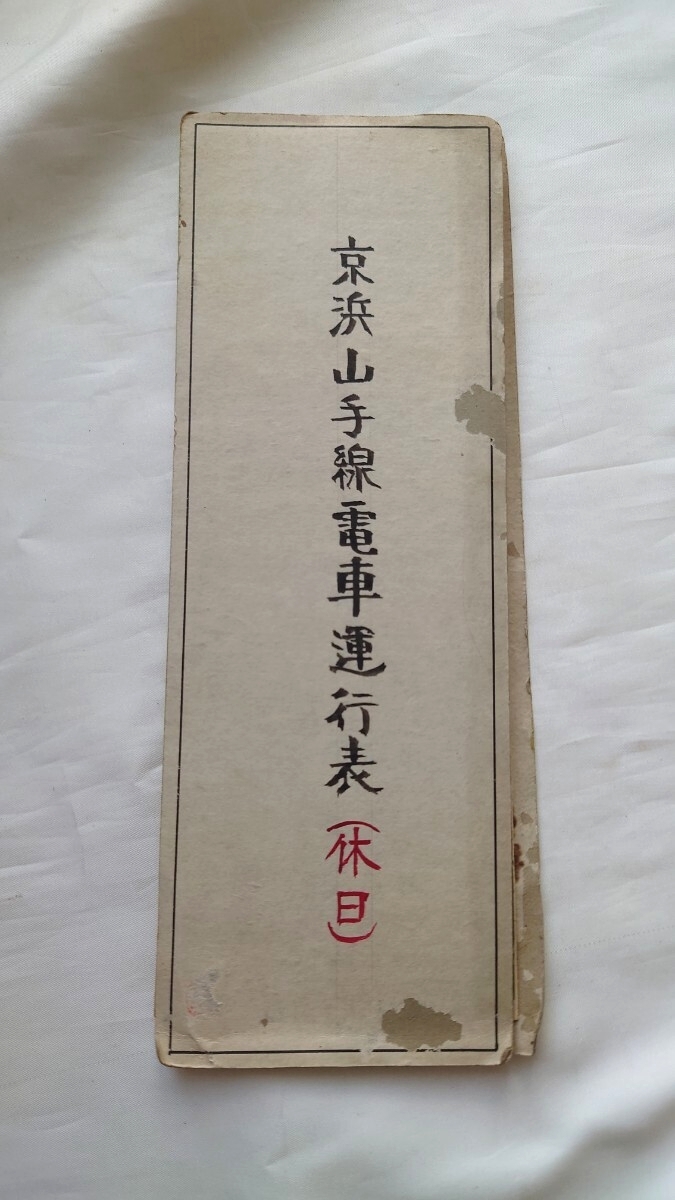 京浜山手線電車運行表（休日）